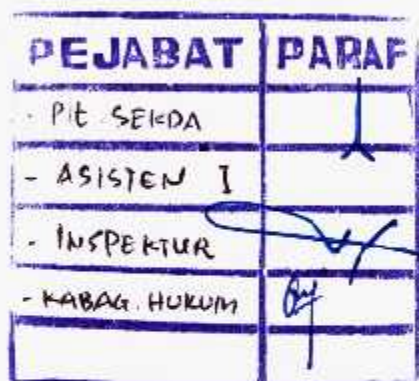 PEJABAT PARAF
- Plt SEKDA
- ASISTEN I
- INSPEKTUR
- KABAG. HUKUM